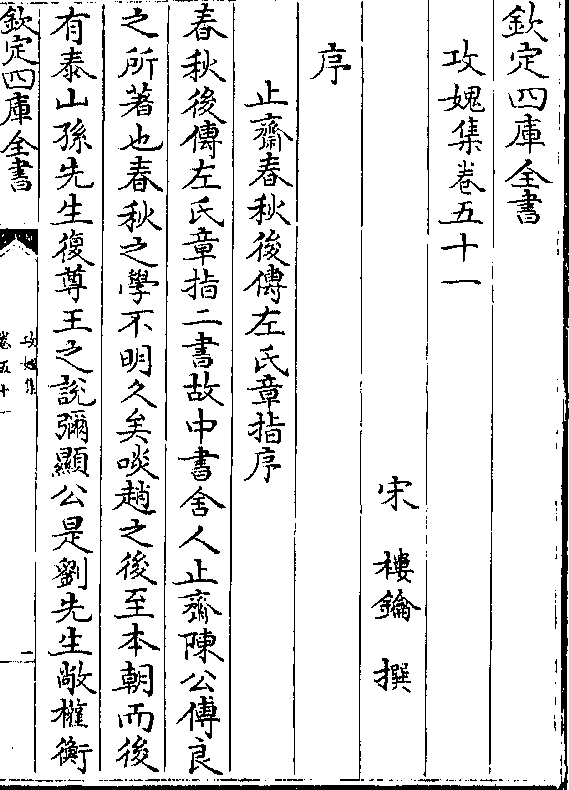 欽定四庫全書
攻媿集卷五十一
宋 樓鑰 撰
序
止齋春秋後傳左氏章指序
春秋後傳左氏章指二書故中書舍人止齋陳公傅良
之所著也春秋之學不明久矣啖趙之後至本朝而後
有泰山孫先生復尊王之說彌顯公是劉先生敞權衡
欽定四庫全書
攻媿集
卷五十一
一